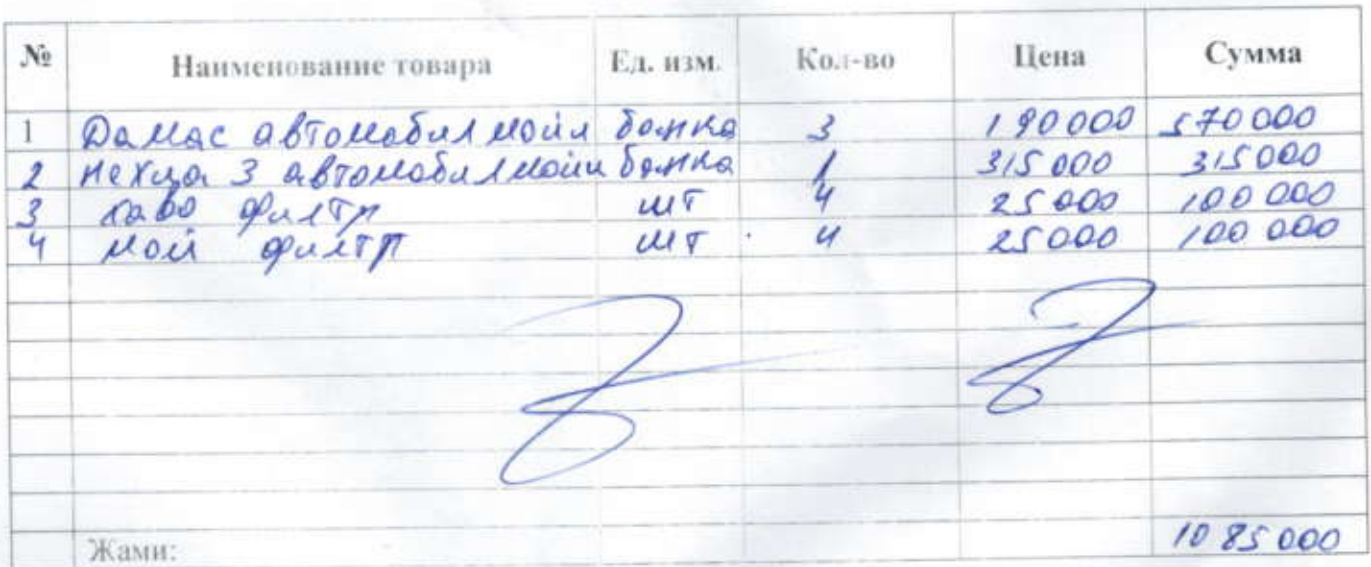 № Наименование товара Ед. изм. Кол-во Цена Сумма
1 Дамас автомобил мойи банка 3 190000 570000
2 Нехиа 3 автомобил мойи банка 1 315000 315000
3 хаво филтр шт 4 25000 100000
4 мой филтр шт 4 25000 100000
Жами: 1085000